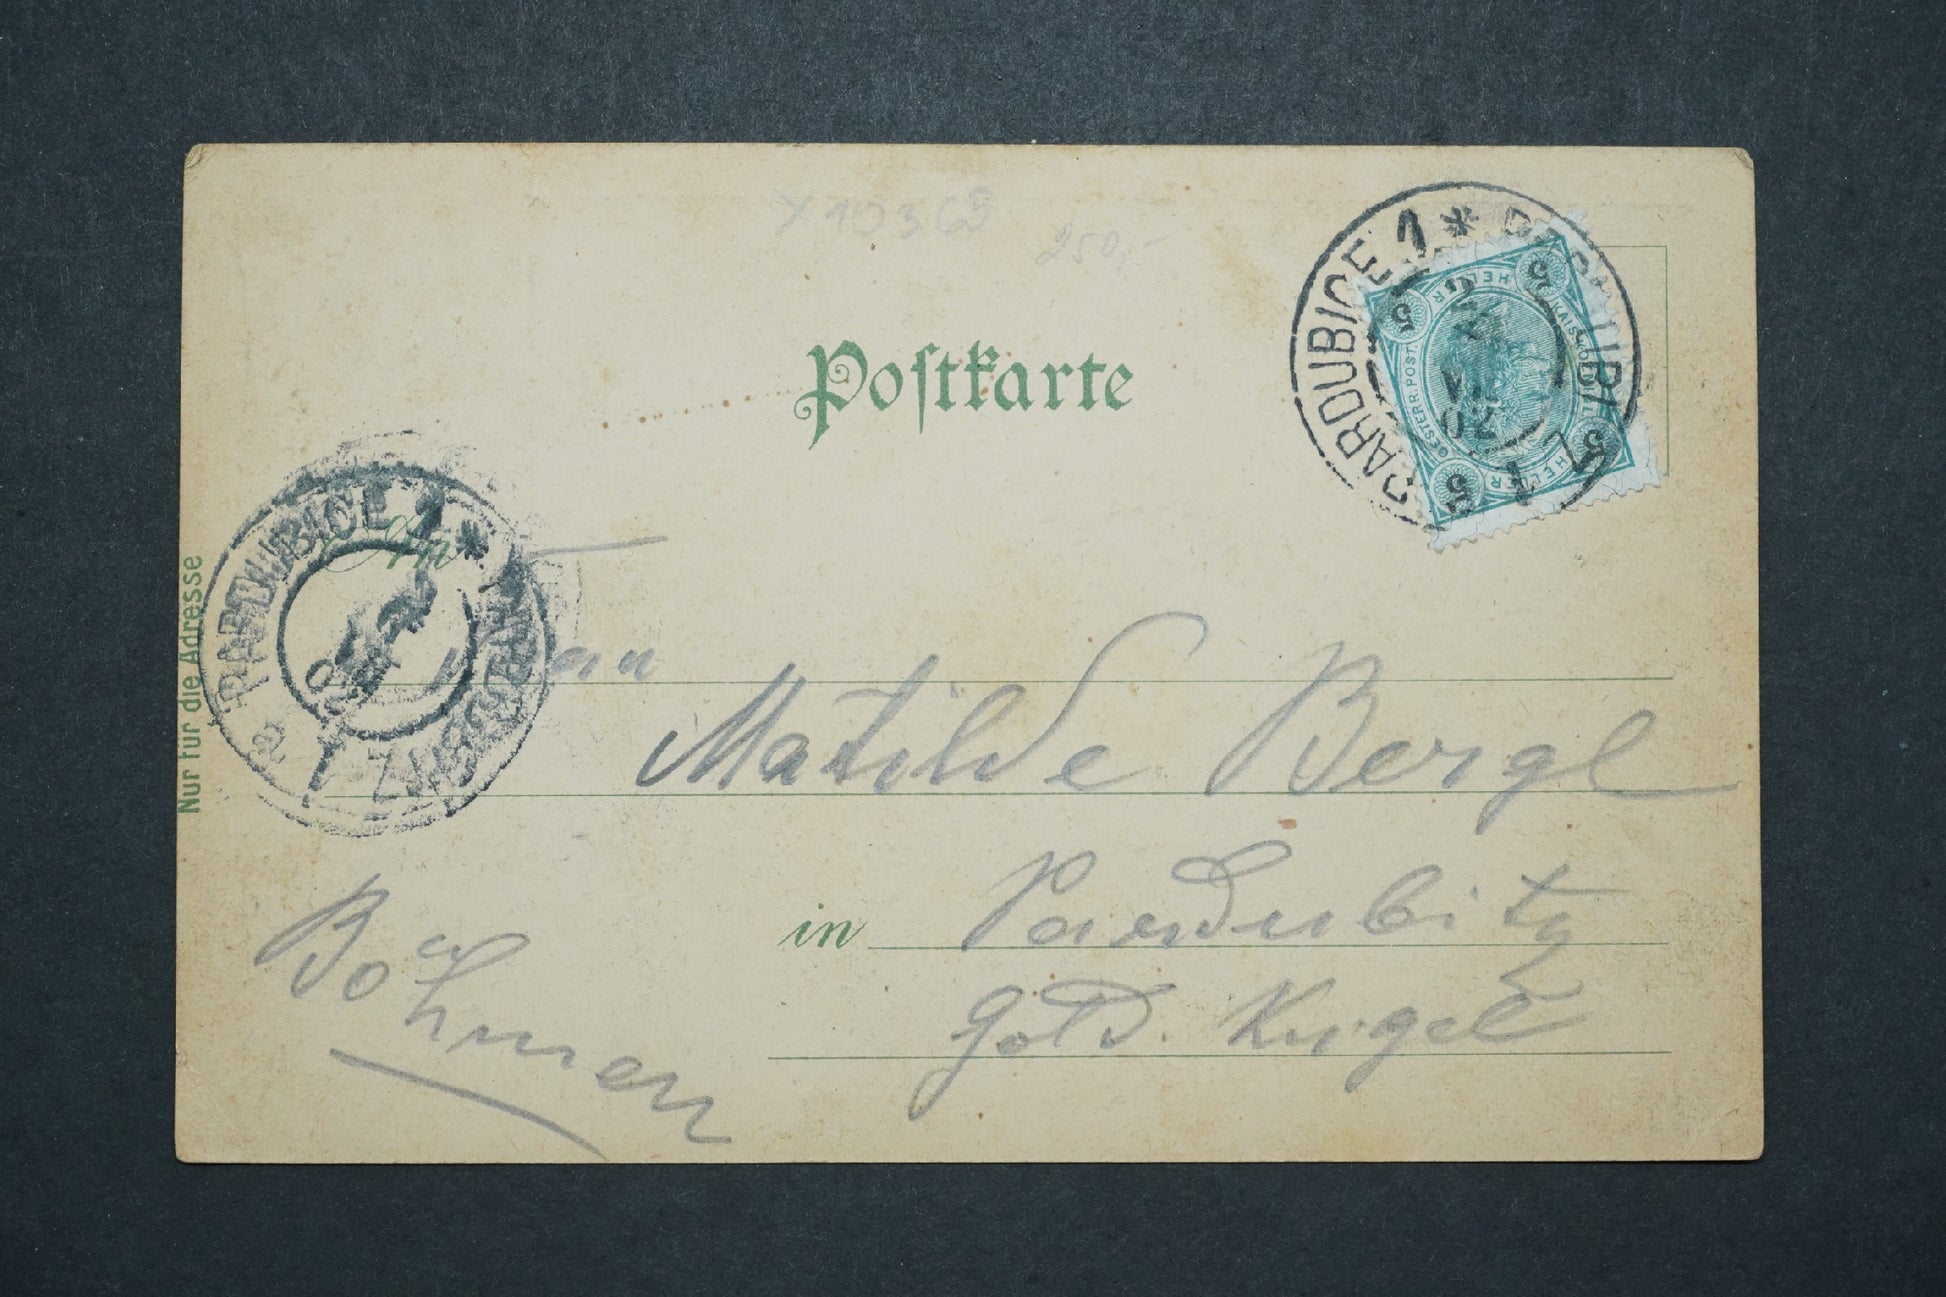 X 10365
250,-
PARDUBICE 1 * PARDUBITZ 1
2
VII
02
5 HELLER 5
KAIS. KÖNIGL.
OESTERR. POST.
5 HELLER 5
Postkarte
An
PARDUBICE 1 * PARDUBITZ 1
Nur für die Adresse
Mathilde Bergl
in Pardubitz
Gold. Kugel
Böhmen